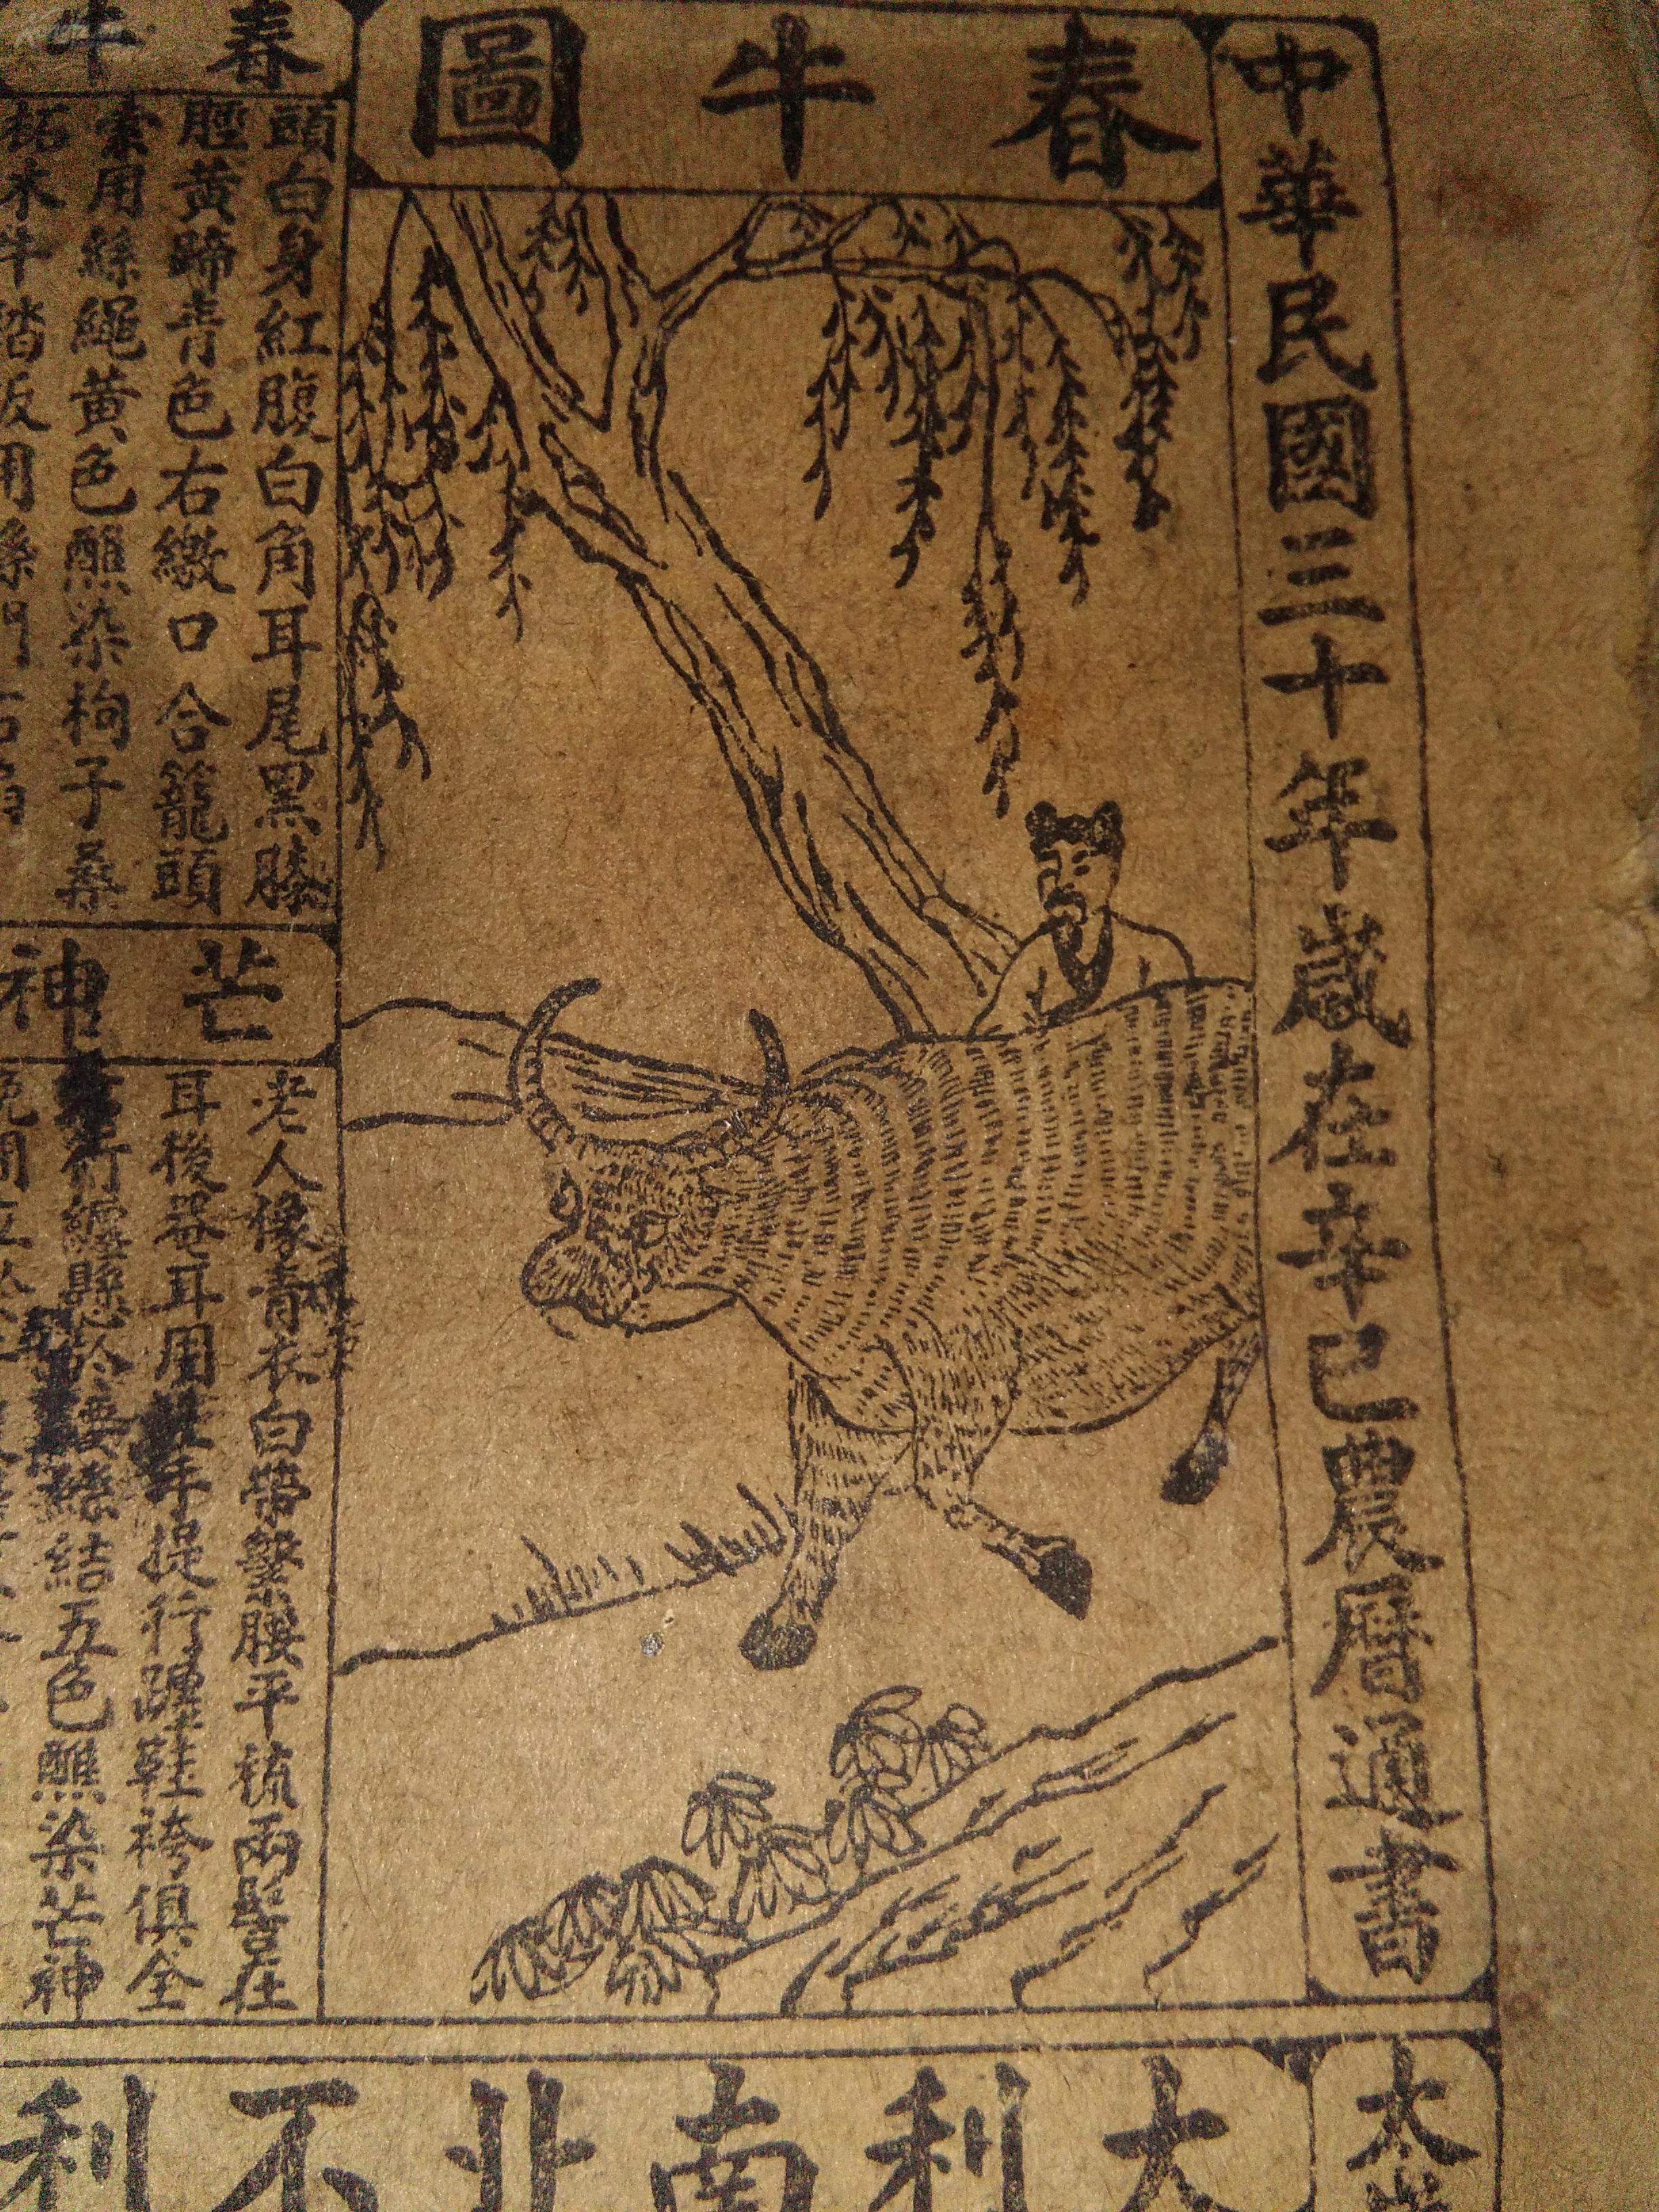 中華民國三十年歲在辛巳農曆通書
春牛圖
春牛
頭白身紅腹白角耳尾黑膝
脛黃蹄青色右繳口合籠頭
索用絲繩黃色醮染枸子桑
拓木牛踏板用縣門右扇
芒神
老人像青衣白帶繫腰平梳兩髻在
耳後罨耳用手提行躔鞋袴俱全
結五色醮染芒神
太歲
大利南北不利